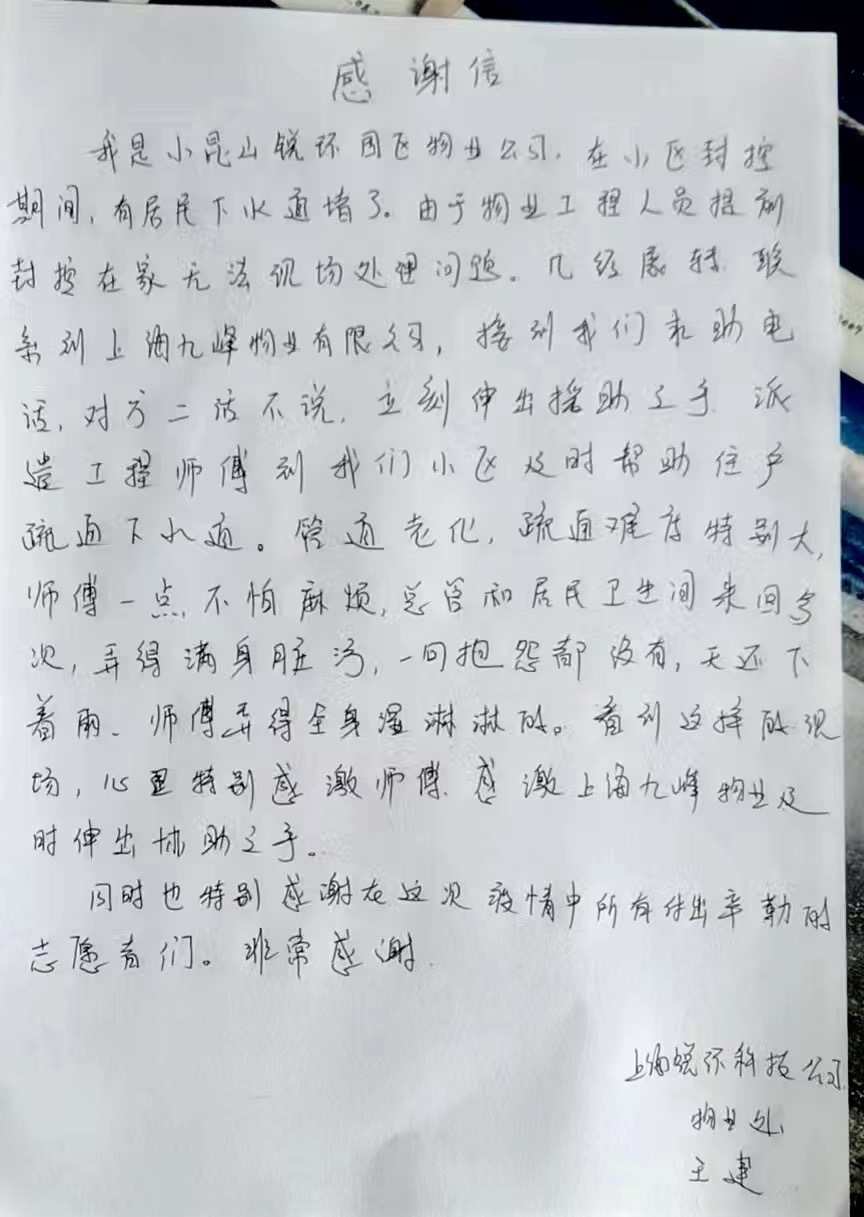 感谢信
我是小昆山锐环园区物业公司,在小区封控
期间,有居民下水道堵了。由于物业工程人员提前
封控在家无法现场处理问题。几经展转 联
系到上海九峰物业有限公司,接到我们求助电
话,对方二话不说,立刻伸出援助之手 派
遣工程师傅到我们小区及时帮助住户
疏通下水道。管道老化,疏通难度特别大,
师傅一点不怕麻烦,总管和居民卫生间来回多
次,弄得满身脏污,一句抱怨都没有,天还下
着雨、师傅弄得全身湿淋淋的。看到这样的现
场,心里特别感激师傅.感激上海九峰物业及
时伸出协助之手。
同时也特别感谢在这次疫情中所有付出辛勤的
志愿者们。非常感谢.
上海锐环科技公司
物业处
王建